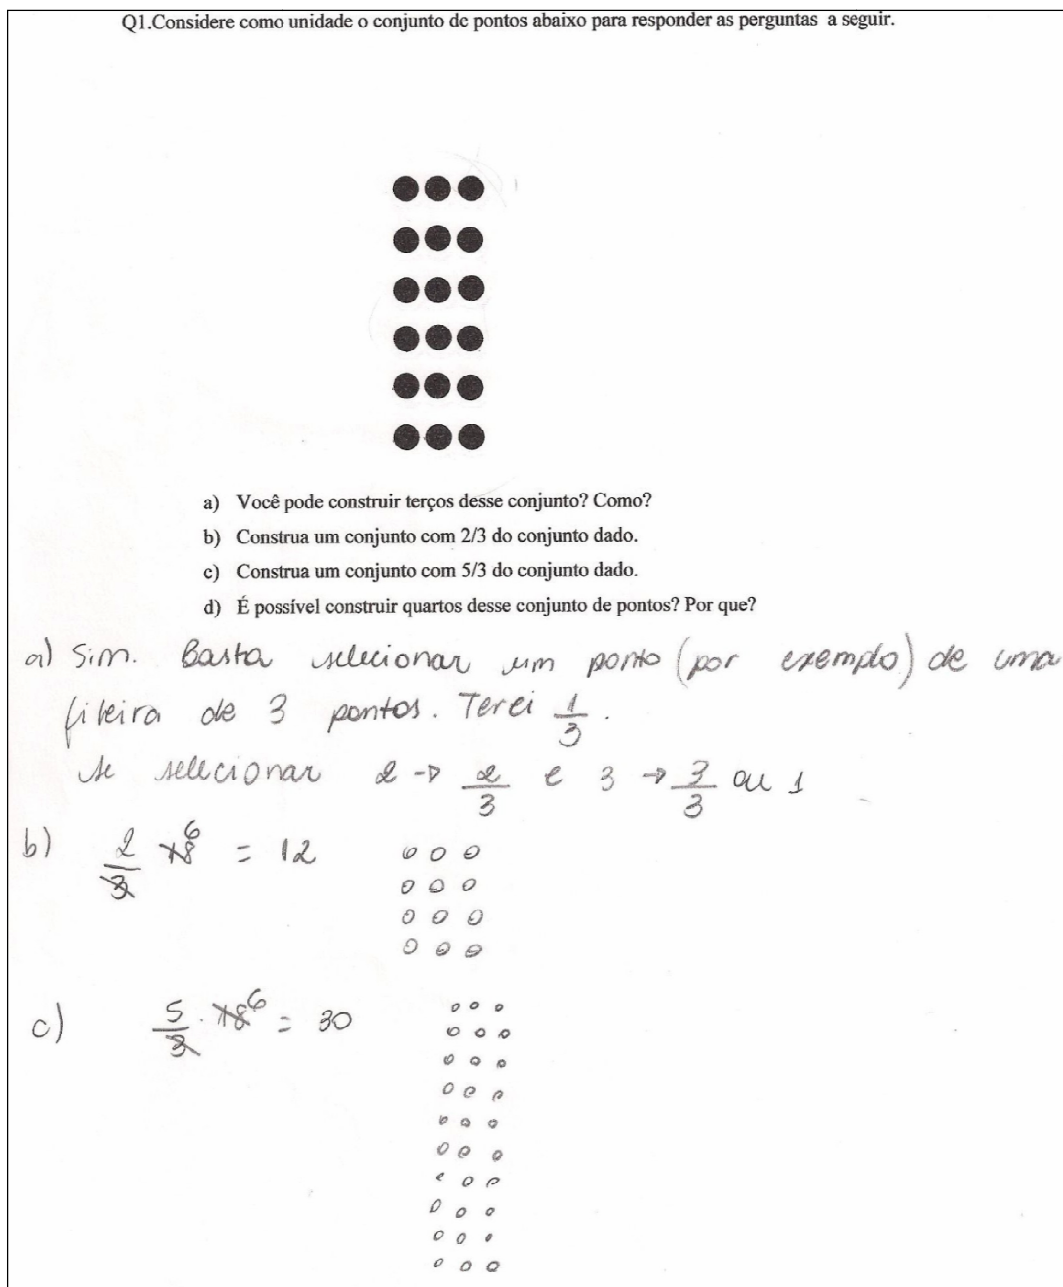 Q1.Considere como unidade o conjunto de pontos abaixo para responder as perguntas a seguir.
a) Você pode construir terços desse conjunto? Como?
b) Construa um conjunto com 2/3 do conjunto dado.
c) Construa um conjunto com 5/3 do conjunto dado.
d) É possível construir quartos desse conjunto de pontos? Por que?
a) Sim. Basta selecionar um ponto (por exemplo) de uma
fileira de 3 pontos. Terei 1/3.
Se selecionar 2 → 2/3 e 3 → 3/3 ou 1
b) 2/3 18 6 = 12
c) 5/3 . 18 6 = 30